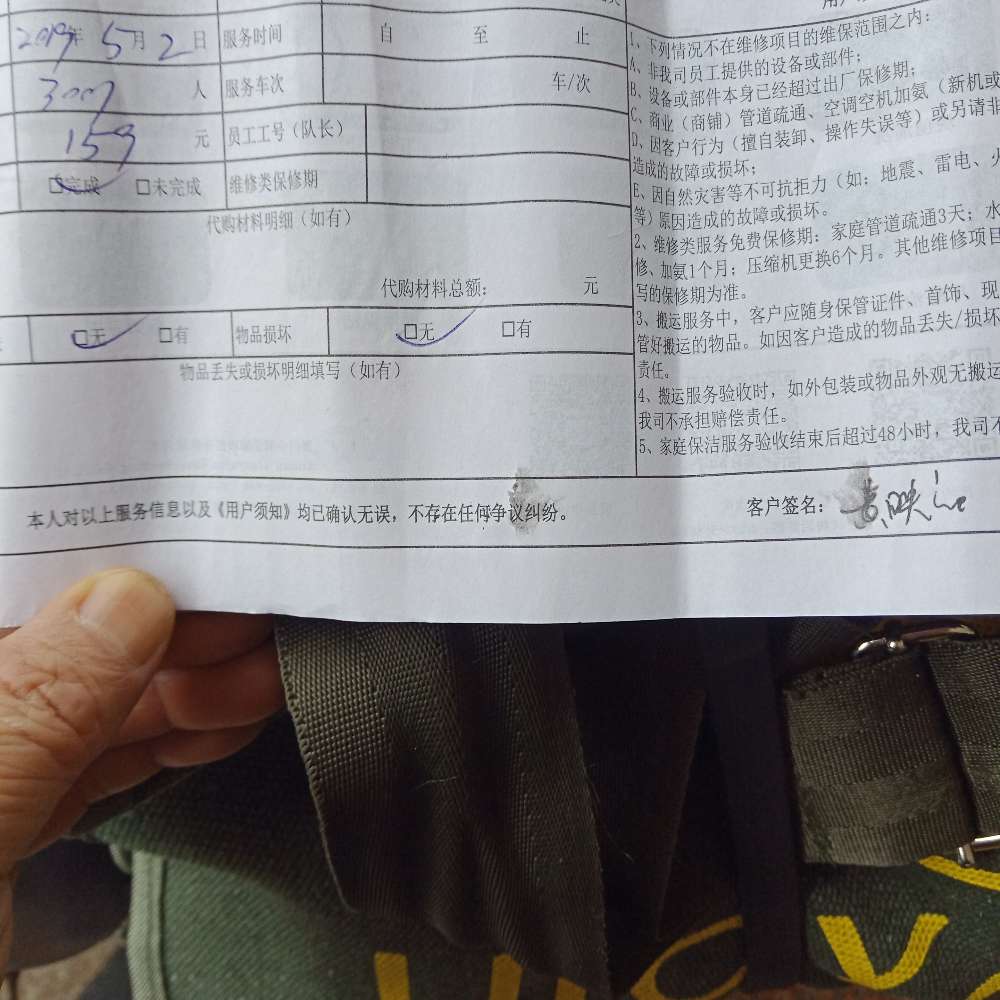 2019年 5月 2日 服务时间 自 至 止
人 服务车次 车/次
159 元 员工工号（队长）
□完成 □未完成 维修类保修期
代购材料明细（如有）
代购材料总额： 元
□无 □有 物品损坏 □无 □有
物品丢失或损坏明细填写（如有）
1、下列情况不在维修项目的维保范围之内：
A、非我司员工提供的设备或部件；
B、设备或部件本身已经超过出厂保修期；
C、商业（商铺）管道疏通、空调空机加氨（新机或
D、因客户行为（擅自装卸、操作失误等）或另请非
造成的故障或损坏；
E、因自然灾害等不可抗拒力（如：地震、雷电、火
等）原因造成的故障或损坏。
2、维修类服务免费保修期：家庭管道疏通3天；水
修、加氨1个月；压缩机更换6个月。其他维修项目
写的保修期为准。
3、搬运服务中，客户应随身保管证件、首饰、现
管好搬运的物品。如因客户造成的物品丢失/损坏
责任。
4、搬运服务验收时，如外包装或物品外观无搬运
我司不承担赔偿责任。
5、家庭保洁服务验收结束后超过48小时，我司不
本人对以上服务信息以及《用户须知》均已确认无误，不存在任何争议纠纷。 客户签名：